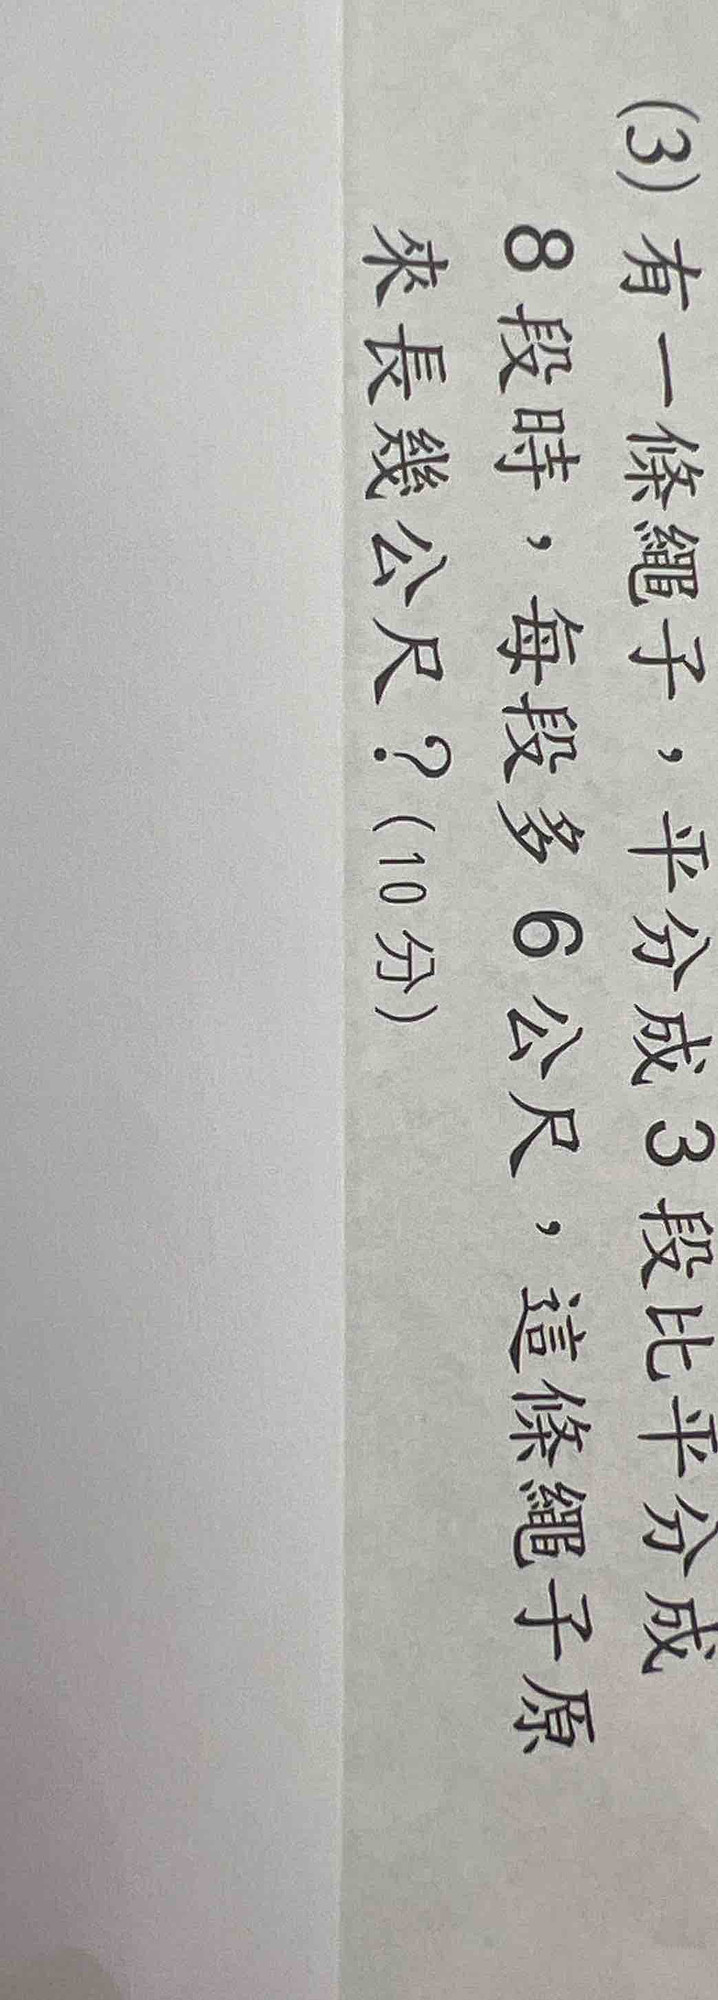 (3) 有一條繩子，平分成3段比平分成
8段時，每段多6公尺，這條繩子原
來長幾公尺？(10分)